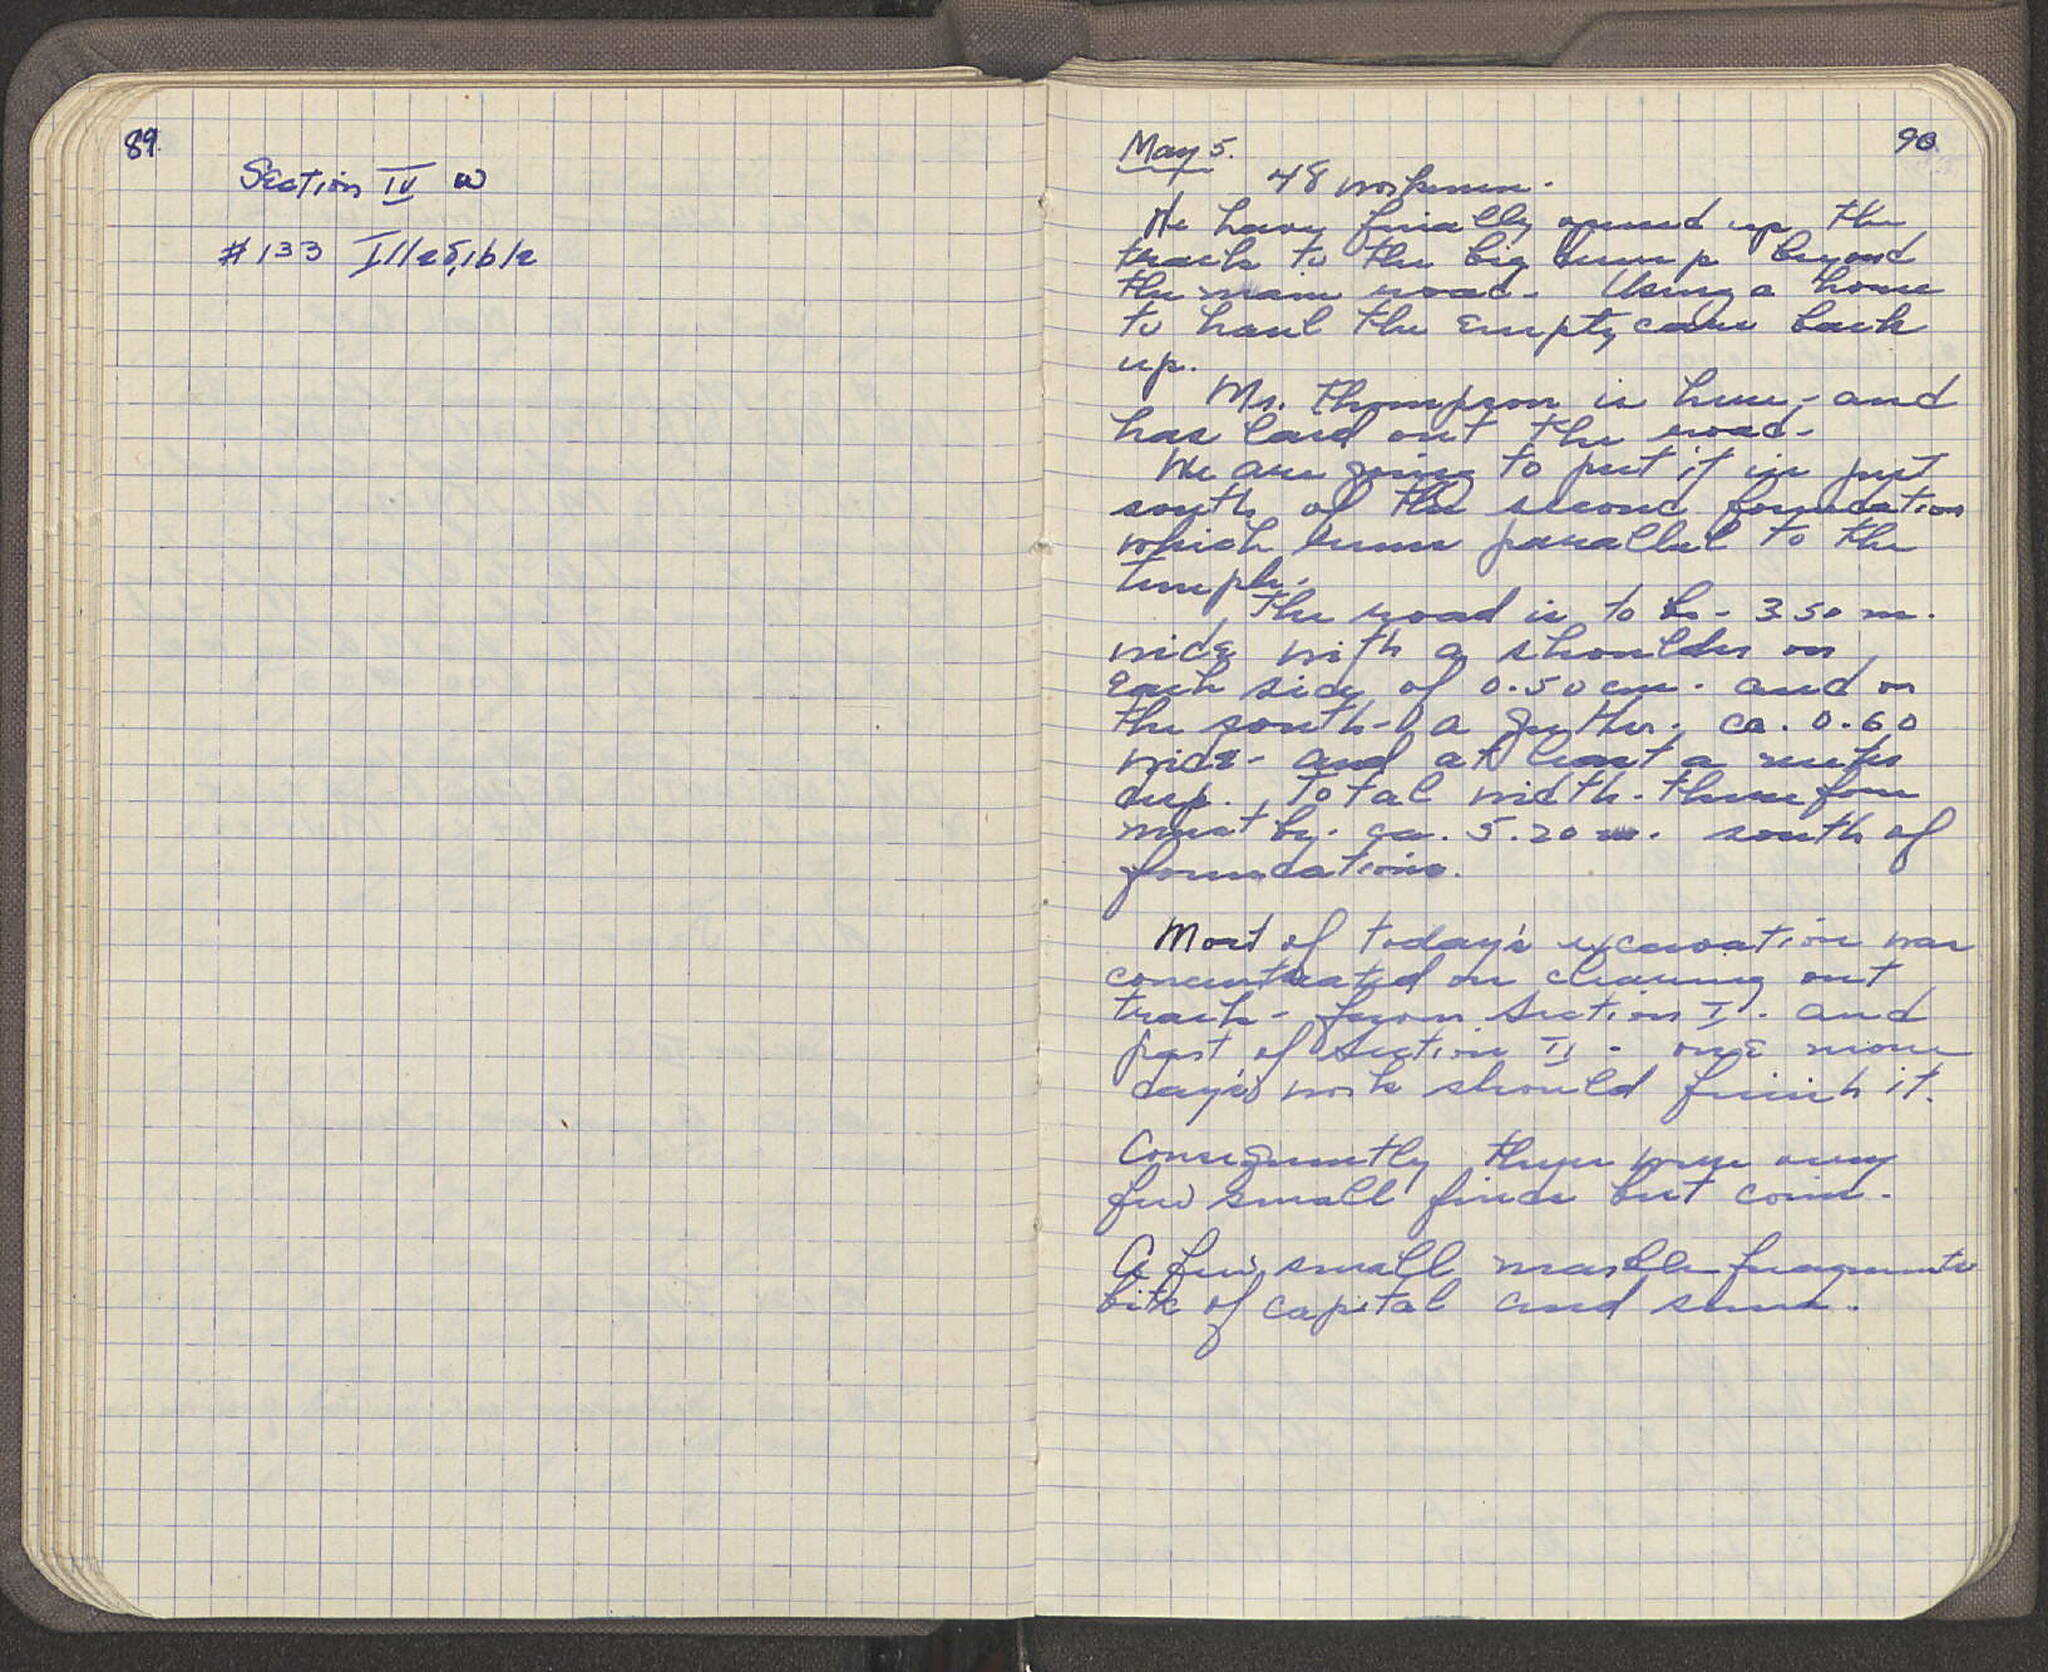 89
Section IV w
#133 Illegible
90
May 5.
48 workmen.
We have finally opened up the
track to the big dump beyond
the main road. Using a horse
to haul the empty cars back
up.
Mr. Thompson is here, and
has laid out the road.
We are going to put it in just
south of the second foundation
which runs parallel to the
temple.
The road is to be - 3.50 m.
wide with a shoulder on
each side of 0.50 cm. and on
the south - a gutter. ca. 0.60
wide - and at least a meter
deep. Total width - therefore
must be. ca. 5.20 m. south of
foundations.
Most of today's excavation was
concentrated on clearing out
track - from Section I. and
part of Section II - one more
day's work should finish it.
Consequently there were very
few small finds but coins.
A few small marble fragments
bits of capital and sima.